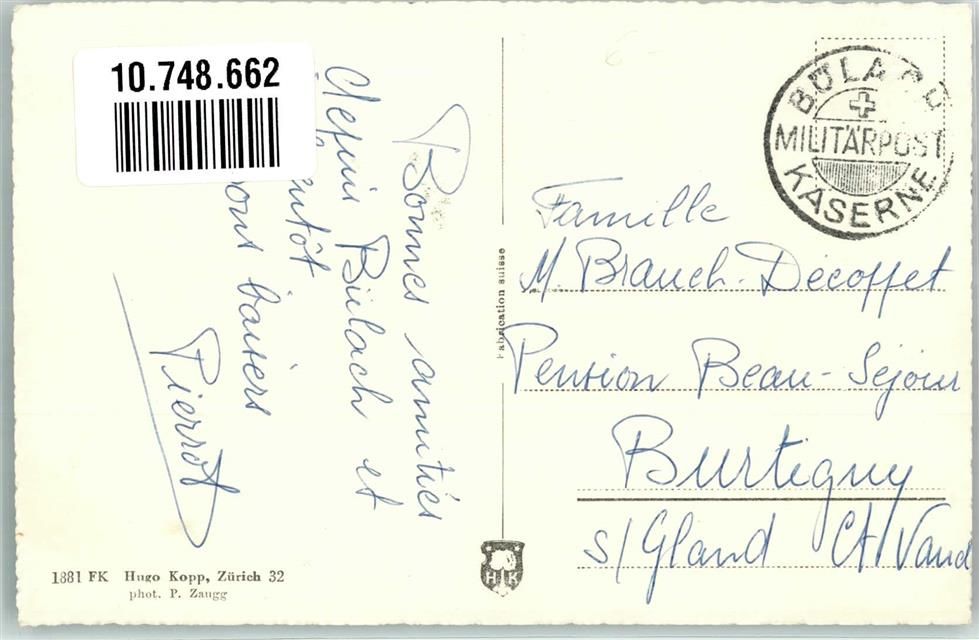 10.748.662
Bonnes amitiés
depuis Bülach et
bientôt
bons baisers
Pierrot
Fabrication suisse
BÜLACH
MILITÄRPOST
KASERNE
Famille
M. Brauch-Décoffet
Pension Beau-Séjour
Burtigny
s/Gland Ct/Vaud
HK
1881 FK Hugo Kopp, Zürich 32
phot. P. Zaugg